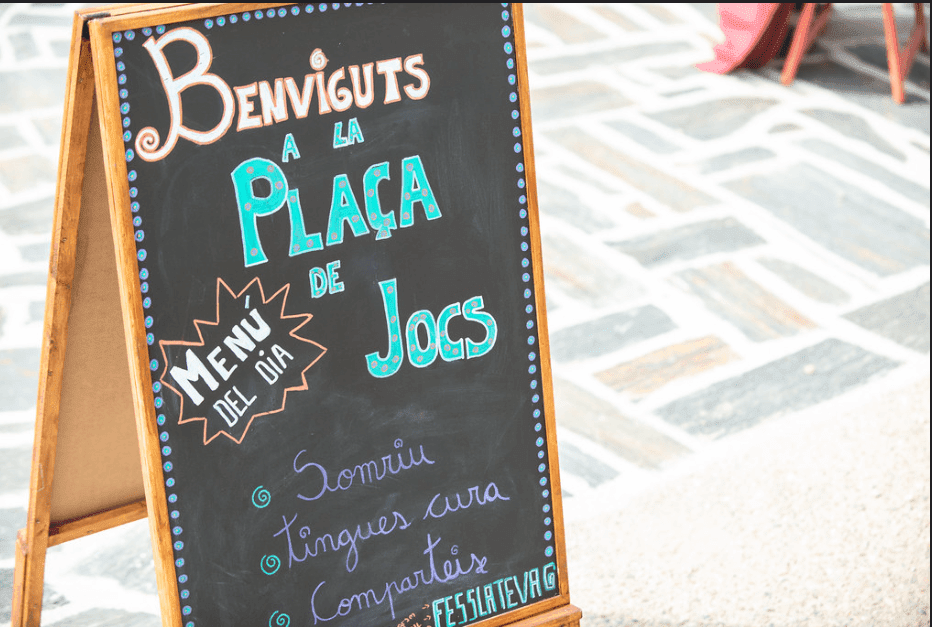 BENVIGUTS
A LA
PLAÇA
DE
JOCS
MENÚ
DEL DÍA
Somriu
tingues cura
Comparteix
FESSLATEVAG